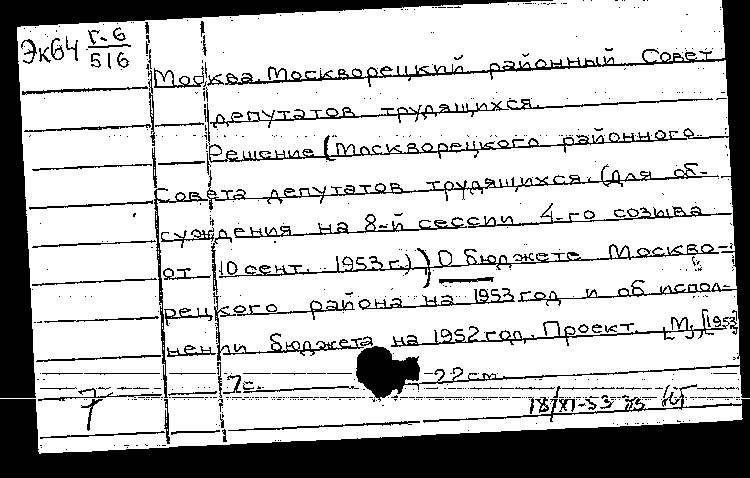 Эк64 Г-6/516
Москва. Москворецкий районный Совет
депутатов трудящихся.
Решение (Москворецкого районного
Совета депутатов трудящихся. (Для об-
суждения на 8-й сессии 4-го созыва
от 10 сент. 1953 г.)) О бюджете Москво-
рецкого района на 1953 год и об испол-
нении бюджета на 1952 год. Проект. [М., [1953
7с. 22 см.
7
18/XI-53